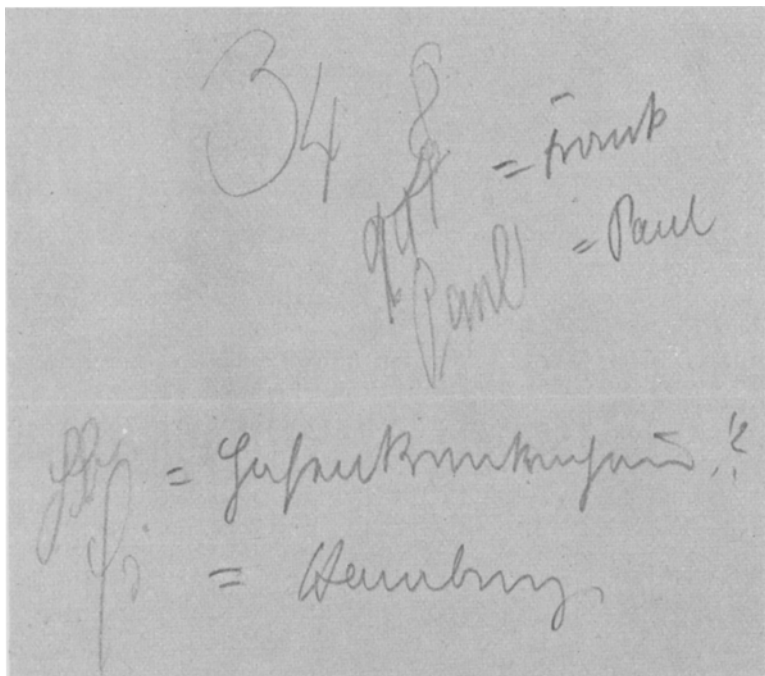 34 8
= Frank
Paul = Paul
= Hafenkrankenhaus !?
= Hamburg